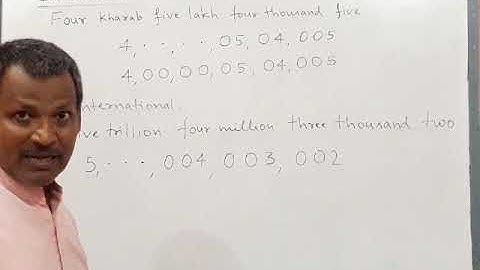 Four kharab five lakh four thousand five
4, · ·, · ·, 05, 04, 005
4,00,00,05,04,005
nternational.
ve trillion four million three thousand two
5, · · ·, 004, 003, 002